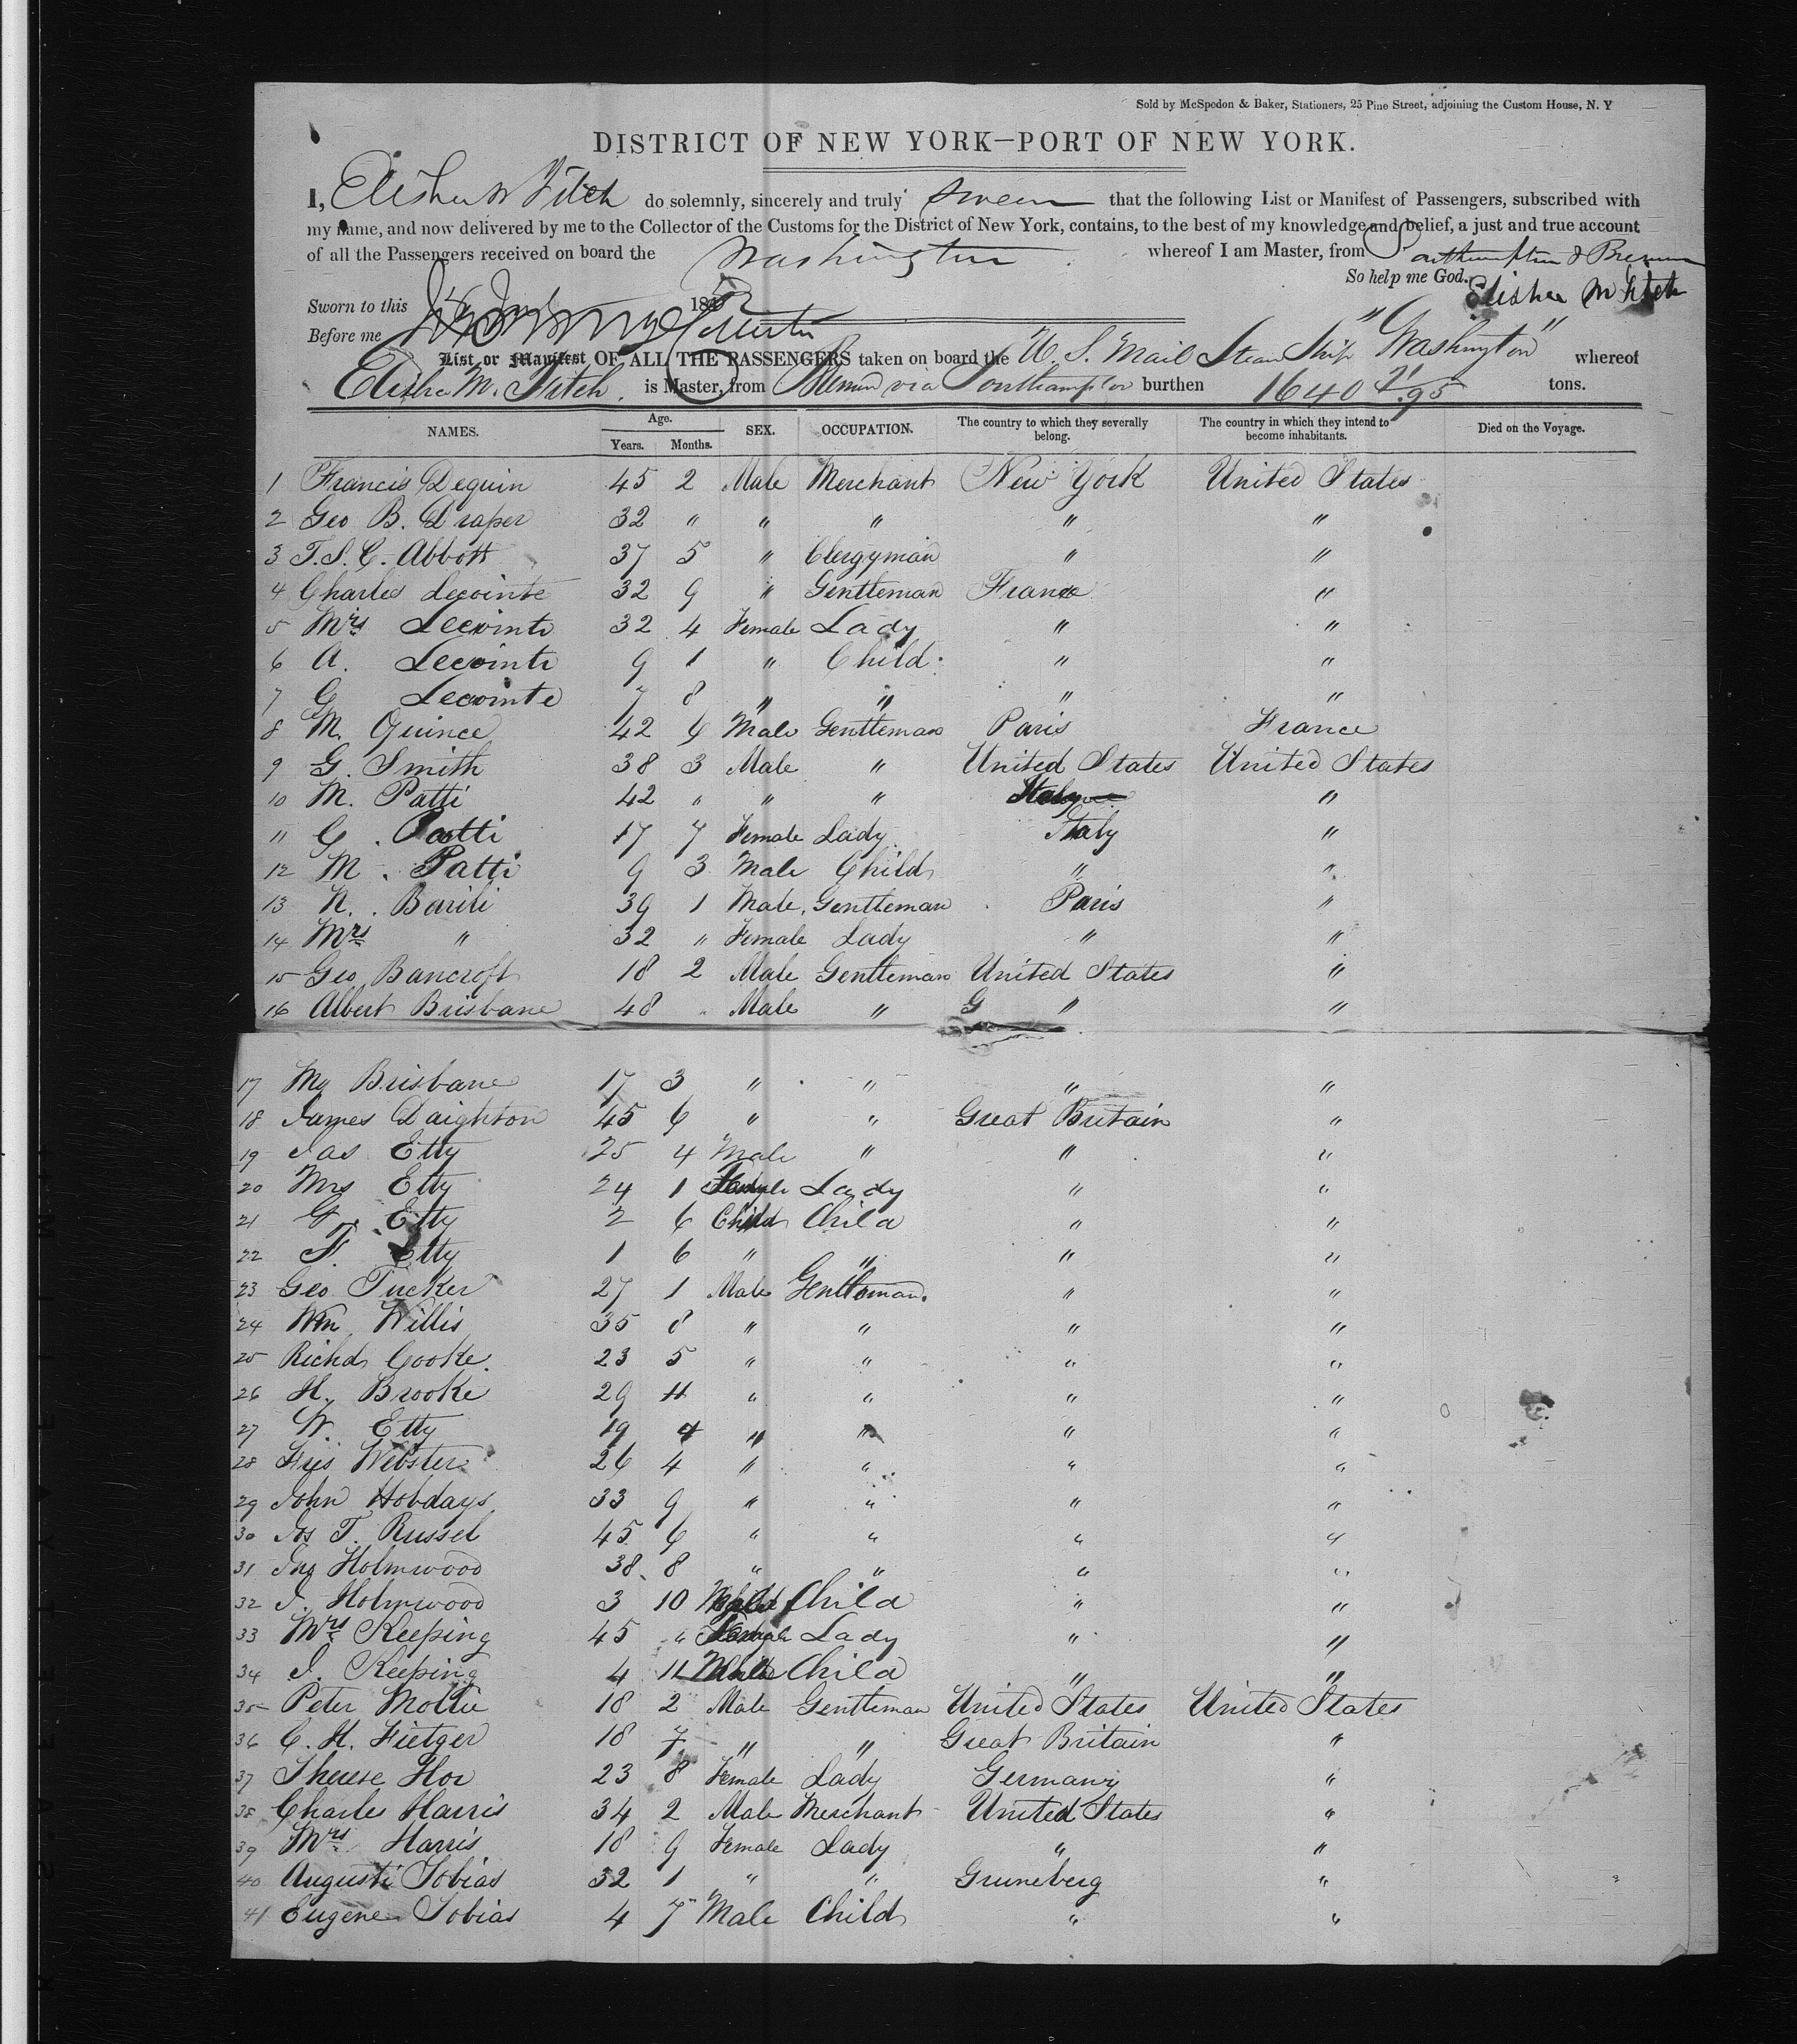 Sold by McSpedon & Baker, Stationers, 25 Pine Street, adjoining the Custom House, N. Y
DISTRICT OF NEW YORK—PORT OF NEW YORK.
I, Elisha M Fitch do solemnly, sincerely and truly swear that the following List or Manifest of Passengers, subscribed with
my name, and now delivered by me to the Collector of the Customs for the District of New York, contains, to the best of my knowledge and belief, a just and true account
of all the Passengers received on board the Washington whereof I am Master, from Southampton & Bremen
So help me God. Elisha M Fitch
Sworn to this 185
Before me
List or Manifest OF ALL THE PASSENGERS taken on board the U. S. Mail Steam Ship "Washington" whereof
Elisha M. Fitch. is Master, from Bremen via Southampton burthen 1640 21/95 tons.
NAMES. Age. Years. Months. SEX. OCCUPATION. The country to which they severally belong. The country in which they intend to become inhabitants. Died on the Voyage.
1 Francis Dequin 45 2 Male Merchant New York United States
2 Geo B. Draper 32 " " " " "
3 T. S. C. Abbott 37 5 " Clergyman " "
4 Charles Lecointe 32 9 " Gentleman France "
5 Mrs Lecointe 32 4 Female Lady " "
6 A. Lecointe 9 1 " Child " "
7 G Lecointe 7 8 " " " "
8 M. Quince 42 6 Male Gentleman Paris France
9 G. Smith 38 3 Male " United States United States
10 M. Patti 42 " " " Italy "
11 C. Patti 17 7 Female Lady Italy "
12 M. Patti 9 3 Male Child " "
13 N. Barili 39 1 Male. Gentleman Paris "
14 Mrs " 32 " Female Lady " "
15 Geo Bancroft 18 2 Male Gentleman United States "
16 Albert Brisbane 48 Male " G " "
17 Mg Brisbane 17 3 " " " "
18 James Daighton 45 6 " " Great Britain "
19 Jas Etty 25 4 Male " " "
20 Mrs Etty 24 1 Female Lady " "
21 G. Etty 2 6 Child Child " "
22 F. Etty 1 6 " " " "
23 Geo Tucker 27 1 Male Gentleman. " "
24 Wm Willis 35 8 " " " "
25 Richd Cooke. 23 5 " " " "
26 H. Brooke 29 11 " " " "
27 W. Etty 19 4 " " " "
28 Webster 26 4 " " " "
29 John Hobdays 33 9 " " " "
30 Js T. Russel 45 6 " " " "
31 Jno Holmwood 38 8 " " " "
32 J. Holmwood 3 10 Child " "
33 Mrs Keeping 45 " Female Lady " "
34 J. Keeping 4 11 Child " "
35 Peter Mottie 18 2 Male Gentleman United States United States
36 C. H. Fietger 18 7 " " Great Britain "
37 Therese Hor 23 8 Female Lady Germany "
38 Charles Harris 34 2 Male Merchant United States "
39 Mrs Harris 18 9 Female Lady " "
40 Auguste Tobias 32 1 " " Gruneberg "
41 Eugene Tobias 4 7 Male Child " "